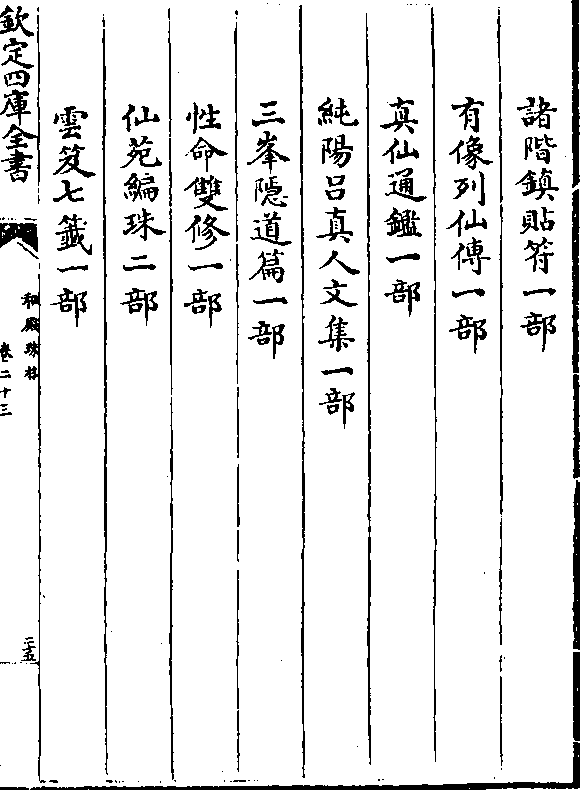 諸階鎮貼符一部
有像列仙傳一部
真仙通鑑一部
純陽呂真人文集一部
三峯隱道篇一部
性命雙修一部
仙苑編珠二部
雲笈七籤一部
欽定四庫全書
秘殿珠林
卷二十三
二十五